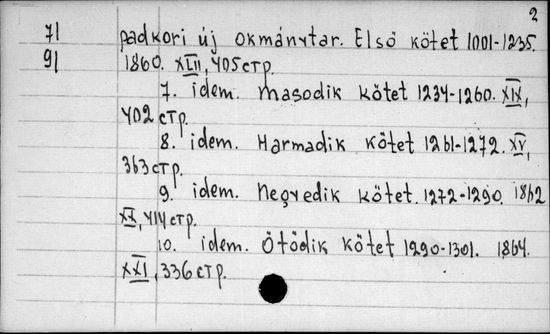 2
71 padkori új okmánytár. Első kötet 1001-1235.
91 1860. XLII, 405 стр.
7. idem. Masodik kötet 1234-1260. XIX,
402 стр.
8. idem. Harmadik kötet 1261-1272. XV,
363 стр.
9. idem. Negyedik kötet. 1272-1290. 1862
XX, 414 стр.
10. idem. Ötödik kötet 1290-1301. 1864.
XXI, 336 стр.